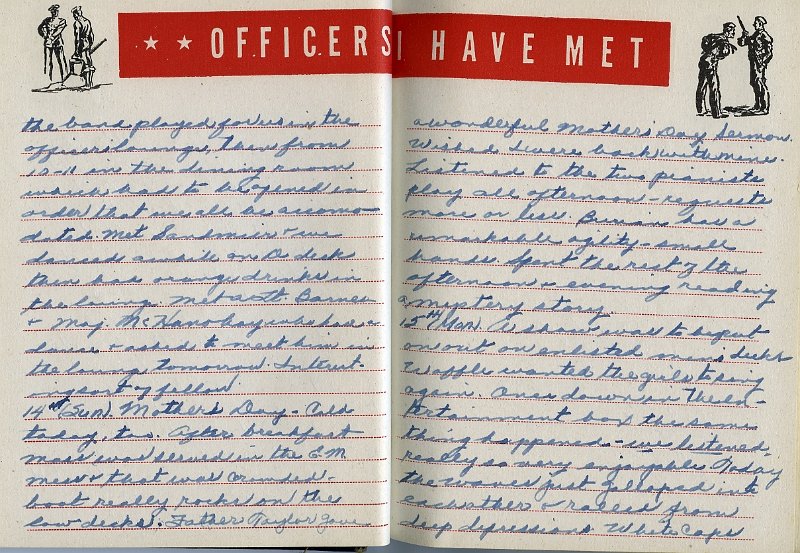 ★ ★ OFFICERS I HAVE MET
the band played for us in the
officers lounge, then from
10-11 in the dining room
which had to be opened in
order that we all be accomo-
dated. Met Sandmeier & we
danced awhile on A deck
then had orange drinks in
the lounge. Met a Lt. Barnes
& Maj. who had a
dance & asked to meet him in
the lounge tomorrow. Interest-
ing sort of fellow.
14th (Sun) Mother's Day - Cold
today, too. After breakfast
mass was served in the EM
mess & that was crowded -
boat really rocks on the
low decks. Father Taylor gave
a wonderful Mother's Day Sermon.
Wished I were back with mine.
Listened to the two pianists
play all afternoon - requests
more or less. has a
remarkable agility - small
hands. Spent the rest of the
afternoon & evening reading
a mystery story.
15th (Mon). A show was to be put
on out on enlisted mens deck &
Waffle wanted the girls to sing
again. Once down in the En-
tertainment box the same
thing happened - we listened,
really so very enjoyable. Today
the waves just galloped into
each other & raced from
deep depressions. White caps